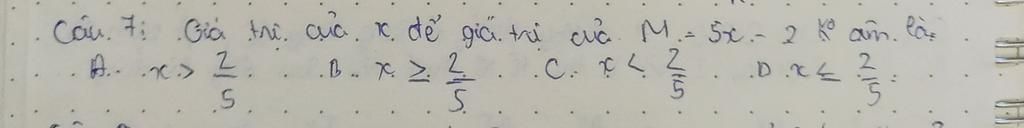 Câu 7: Giá trị của x để giá trị của M = 5x - 2 Kº âm là:
A. x > 2/5 B. x ≥ 2/5 C. x < 2/5 D x ≤ 2/5